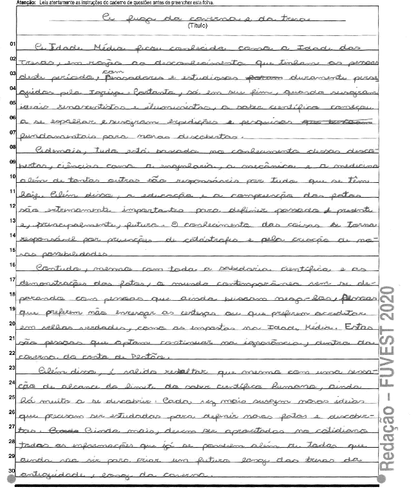 Atenção: Leia atentamente as instruções do caderno de questões antes de preencher esta folha.
A fuga da caverna e da treva
(Título)
01 A Idade Média ficou conhecida como a Idade das
02 Trevas, em razão do desconhecimento que tinham as pessoas
03 deste período, com pensadores e estudiosos foram duramente perse
04 guidos pela Igreja. Contanto, só em seu fim, quando surgiam
05 ideais renascentistas e iluministas, o saber científico começou
06 a se espalhar e surgiram expedições e pesquisas
07 fundamentais para novas descobertas.
08 tudo está baseado no conhecimento dessas desco-
09 bertas, ciências como a engenharia, a mecânica e a medicina
10 além de tantas outras são responsáveis por tudo que se tem
11 hoje. Além disso, a educação e a compreensão dos fatos
12 são extremamente importantes para definir passado, presente
13 e, principalmente, futuro. O conhecimento das coisas se torna
14 responsável por prevenções de catástrofes e pela criação de no-
15 vas possibilidades.
16 Contudo, mesmo com toda a sabedoria científica e as
17 demonstrações dos fatos, o mundo contemporâneo vem se de-
18 parando com pessoas que ainda buscam negá-las. Pessoas
19 que preferem não enxergar as certezas ou que preferem acreditar
20 em velhas verdades, como as impostas na Idade Média. Estas
21 são pessoas que optam continuar na ignorância, dentro da
22 caverna do conto de Platão.
23 Além disso, é válido ressaltar que mesmo com uma sensa-
24 ção de alcance do limite do saber científico humano, ainda
25 há muito a se descobrir. Cada vez mais surgem novas ideias
26 que precisam ser estudadas para definir novos fatos e descober-
27 tas. Ainda mais, devem ser aproveitadas no cotidiano
28 todas as informações que já se possuem além de todas que
29 ainda vão vir para criar um futuro longe das trevas da
30 antiguidade, longe da caverna.
Redação – FUVEST 2020